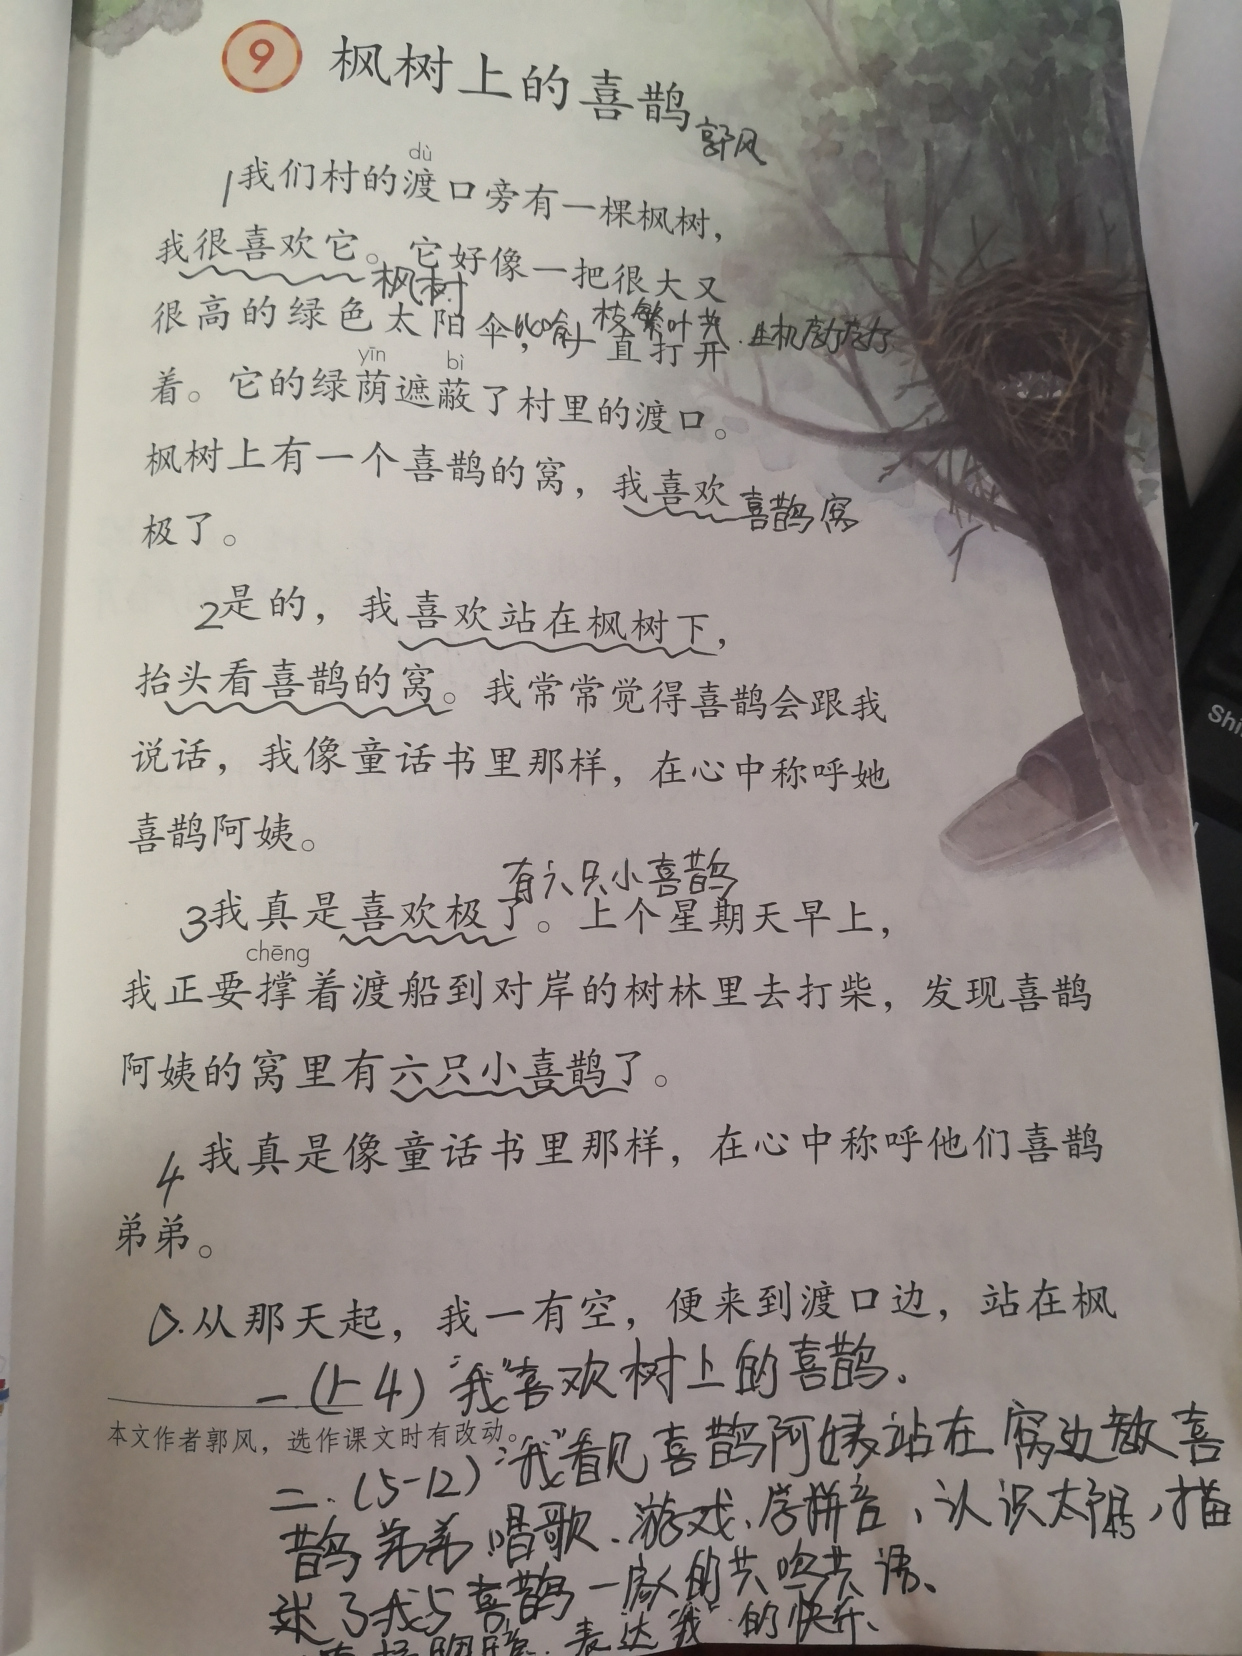 9 枫树上的喜鹊
郭风
dù
1我们村的渡口旁有一棵枫树，
我很喜欢它。它好像一把很大又
枫树
很高的绿色太阳伞，一直打开
比喻 枝繁叶茂 生机勃勃
yīn bì
着。它的绿荫遮蔽了村里的渡口。
枫树上有一个喜鹊的窝，我喜欢
喜鹊窝
极了。
2是的，我喜欢站在枫树下，
抬头看喜鹊的窝。我常常觉得喜鹊会跟我
说话，我像童话书里那样，在心中称呼她
喜鹊阿姨。
有六只小喜鹊
3我真是喜欢极了。上个星期天早上，
chēng
我正要撑着渡船到对岸的树林里去打柴，发现喜鹊
阿姨的窝里有六只小喜鹊了。
4我真是像童话书里那样，在心中称呼他们喜鹊
弟弟。
从那天起，我一有空，便来到渡口边，站在枫
一(1-4)“我”喜欢树上的喜鹊.
本文作者郭风，选作课文时有改动。
二.(5-12)“我”看见喜鹊阿姨站在窝边教喜
鹊弟弟唱歌、游戏、学拼音，认识太阳，描
述了我与喜鹊一家人的共语、
表达“我”的快乐、
Shi